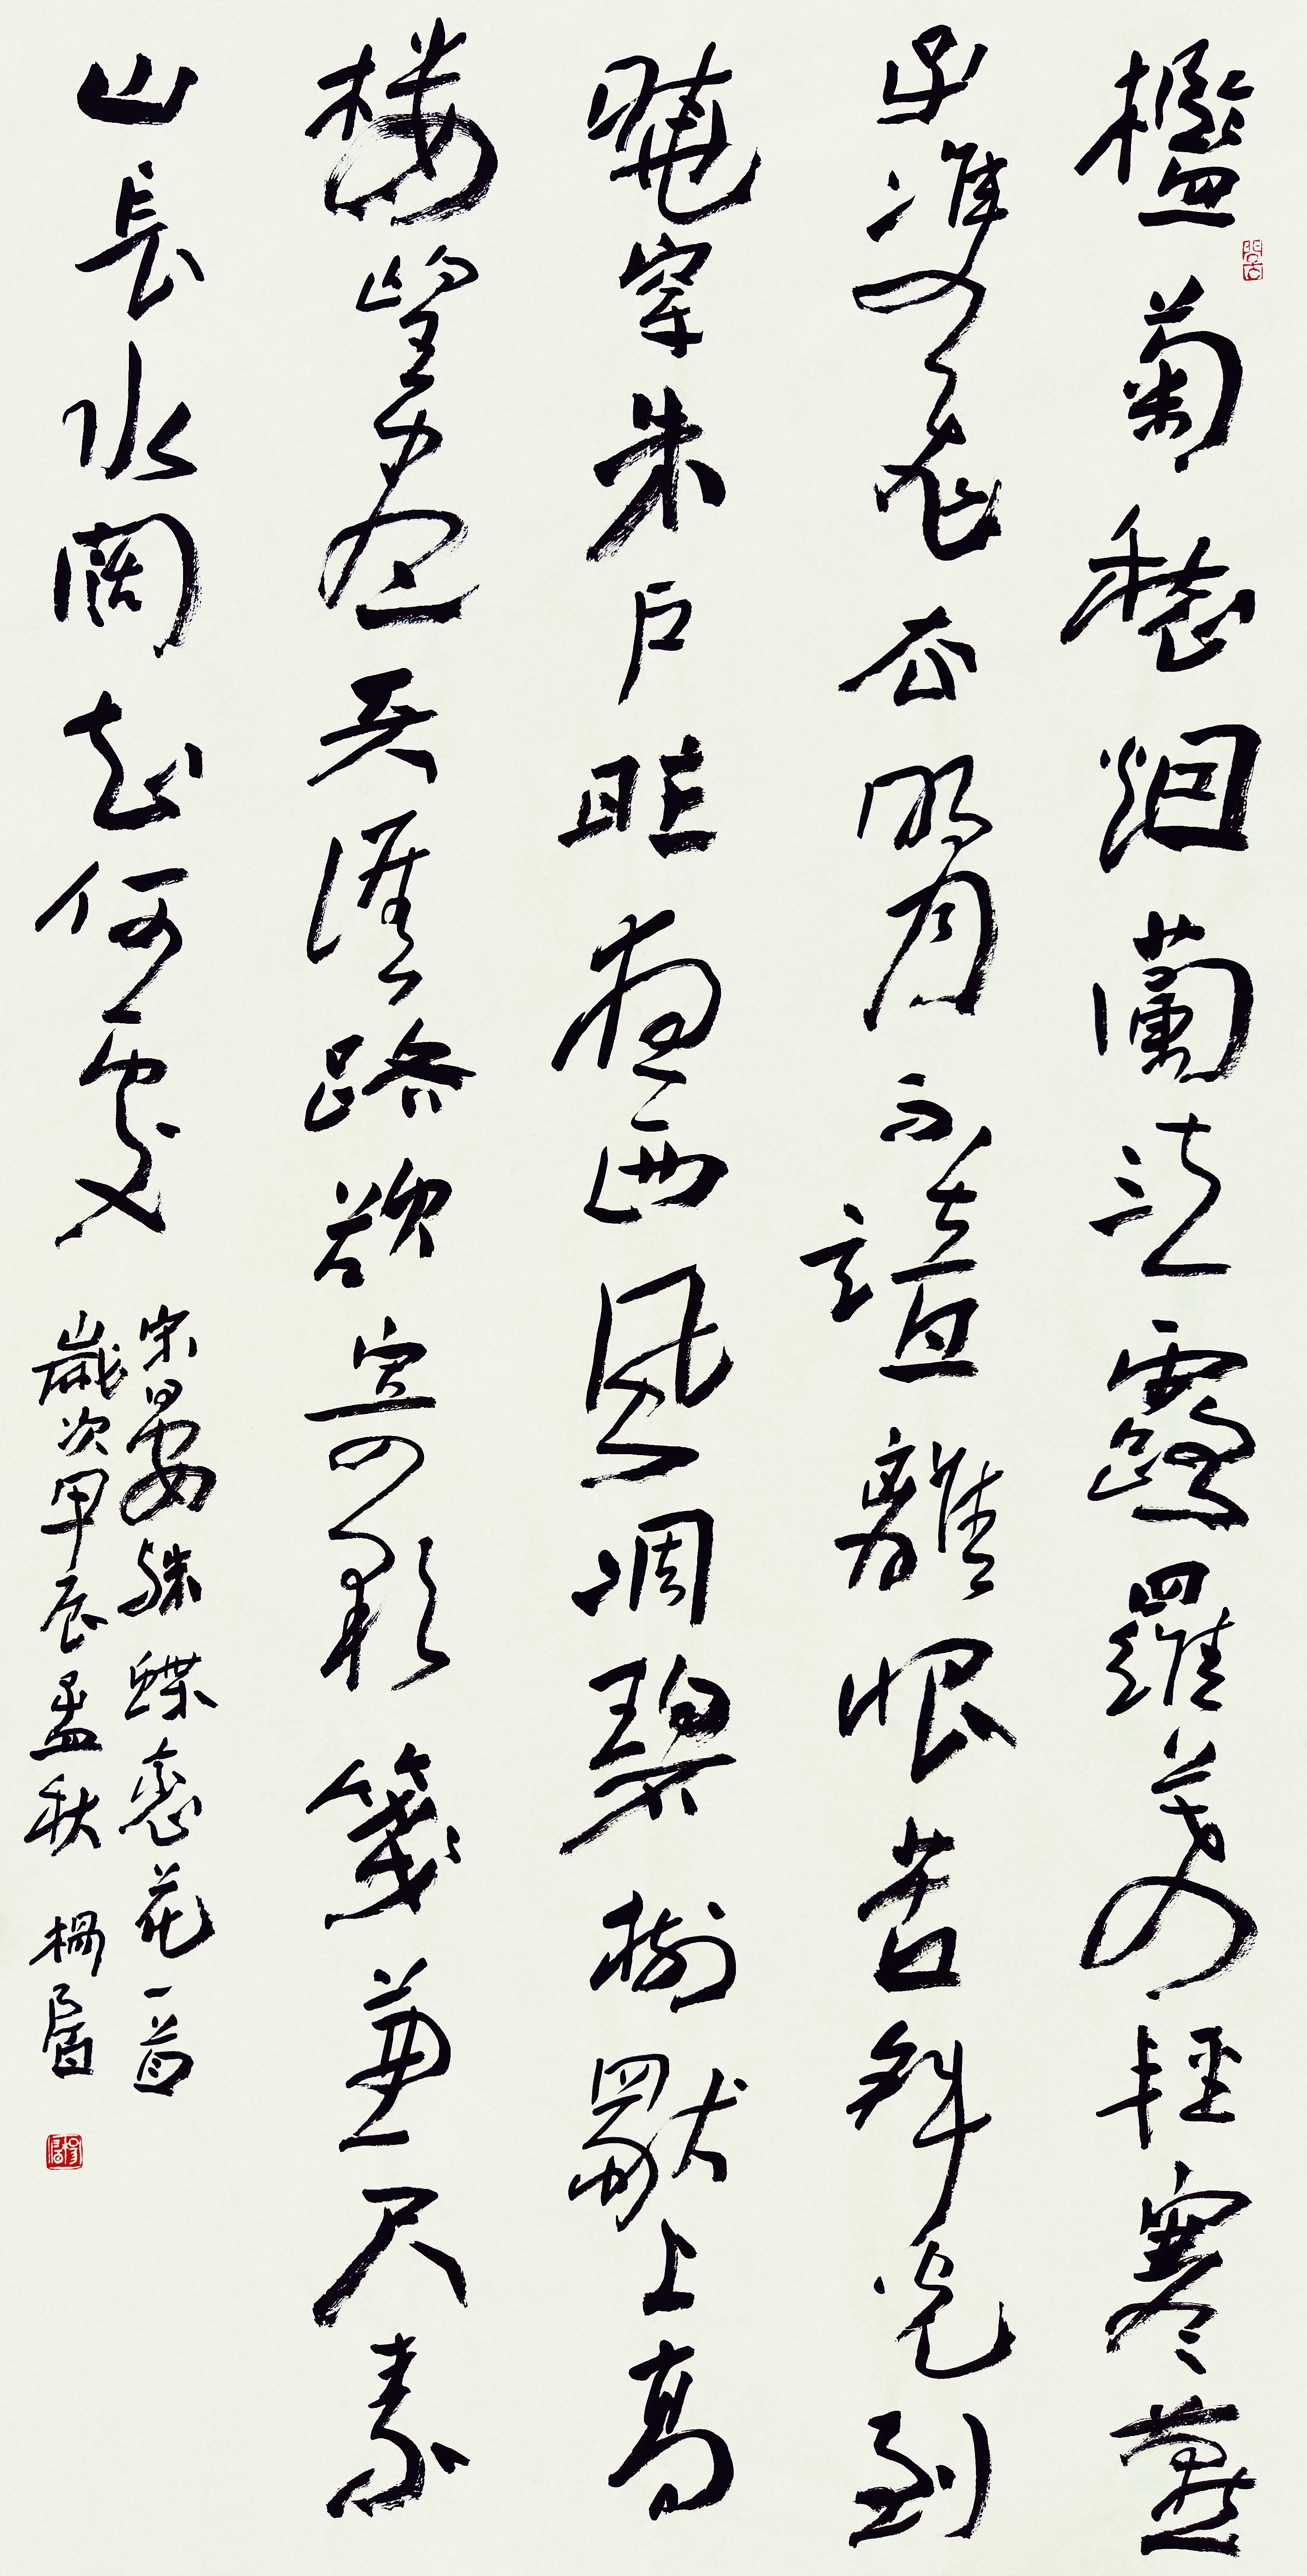 檻菊愁烟蘭泣露羅幕輕寒燕
子雙飛去明月不諳離恨苦斜光到
曉穿朱戶昨夜西風凋碧樹獨上高
樓望盡天涯路欲寄彩箋兼尺素
山長水闊知何處
宋晏殊蝶恋花一首
歲次甲辰孟秋